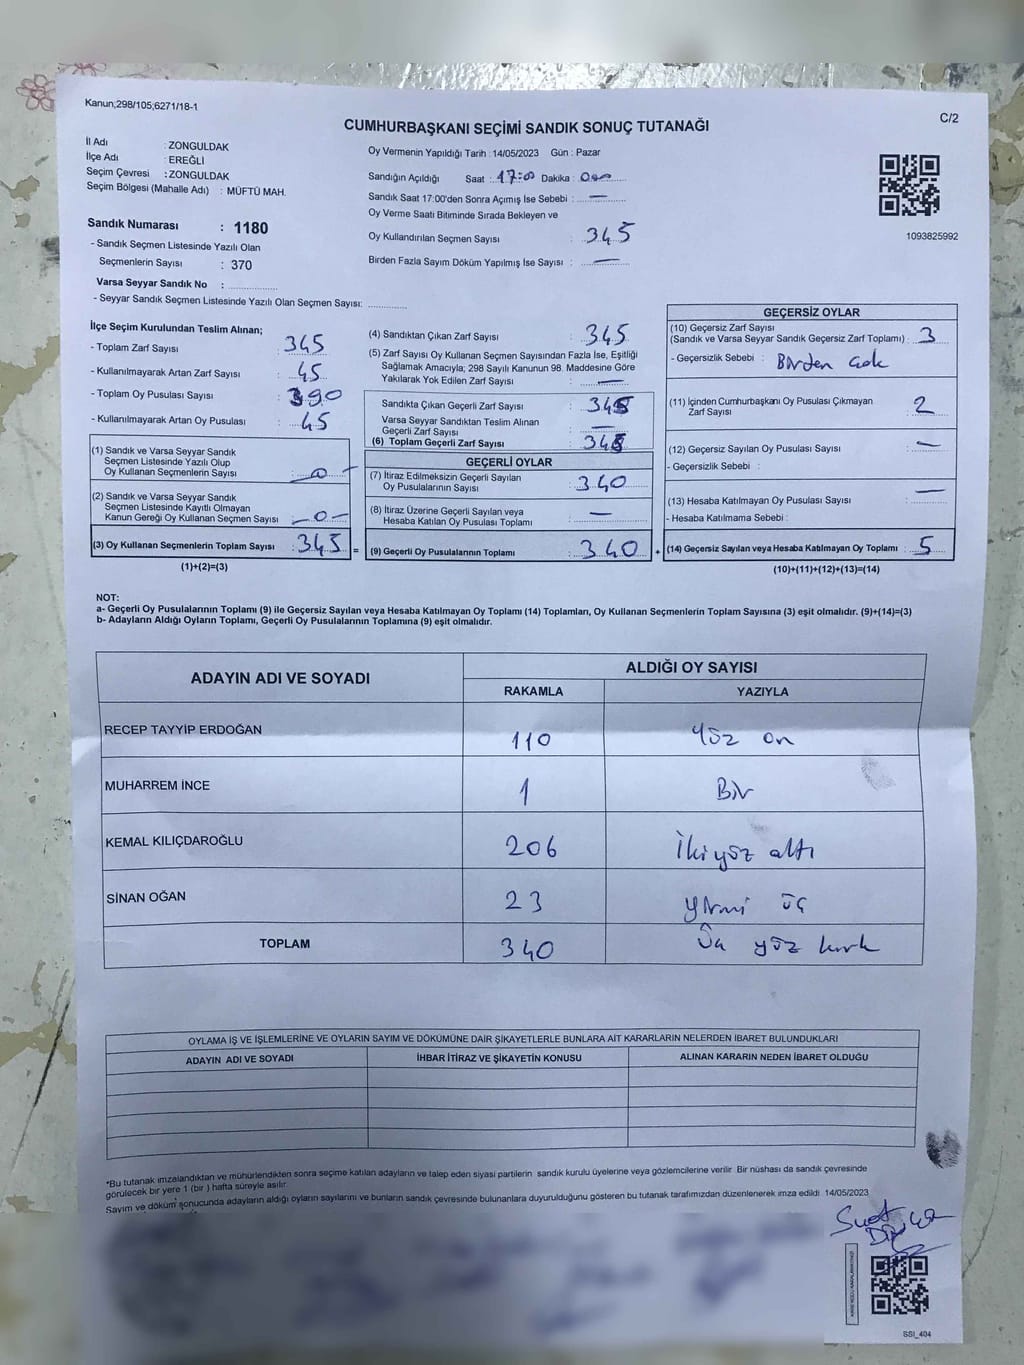 Kanun;298/105;6271/18-1
C/2
CUMHURBAŞKANI SEÇİMİ SANDIK SONUÇ TUTANAĞI
İl Adı : ZONGULDAK
İlçe Adı : EREĞLİ
Seçim Çevresi : ZONGULDAK
Seçim Bölgesi (Mahalle Adı) : MÜFTÜ MAH.
Oy Vermenin Yapıldığı Tarih : 14/05/2023 Gün : Pazar
Sandığın Açıldığı Saat : 17:00 Dakika :
Sandık Saat 17:00'den Sonra Açımış İse Sebebi : —
Oy Verme Saati Bitiminde Sırada Bekleyen ve
Oy Kullandırılan Seçmen Sayısı : 345
Birden Fazla Sayım Döküm Yapılmış İse Sayısı : —
1093825992
Sandık Numarası : 1180
- Sandık Seçmen Listesinde Yazılı Olan
Seçmenlerin Sayısı : 370
Varsa Seyyar Sandık No :
- Seyyar Sandık Seçmen Listesinde Yazılı Olan Seçmen Sayısı:
İlçe Seçim Kurulundan Teslim Alınan;
- Toplam Zarf Sayısı : 345
- Kullanılmayarak Artan Zarf Sayısı : 45
- Toplam Oy Pusulası Sayısı : 390
- Kullanılmayarak Artan Oy Pusulası : 45
(1) Sandık ve Varsa Seyyar Sandık
Seçmen Listesinde Yazılı Olup
Oy Kullanan Seçmenlerin Sayısı : —0—
(2) Sandık ve Varsa Seyyar Sandık
Seçmen Listesinde Kayıtlı Olmayan
Kanun Gereği Oy Kullanan Seçmen Sayısı : —0—
(3) Oy Kullanan Seçmenlerin Toplam Sayısı : 345 =
(1)+(2)=(3)
(4) Sandıktan Çıkan Zarf Sayısı : 345
(5) Zarf Sayısı Oy Kullanan Seçmen Sayısından Fazla İse, Eşitliği
Sağlamak Amacıyla; 298 Sayılı Kanunun 98. Maddesine Göre
Yakılarak Yok Edilen Zarf Sayısı : —
Sandıkta Çıkan Geçerli Zarf Sayısı :
Varsa Seyyar Sandıktan Teslim Alınan
Geçerli Zarf Sayısı : —
(6) Toplam Geçerli Zarf Sayısı :
GEÇERLİ OYLAR
(7) İtiraz Edilmeksizin Geçerli Sayılan
Oy Pusulalarının Sayısı : 340
(8) İtiraz Üzerine Geçerli Sayılan veya
Hesaba Katılan Oy Pusulası Toplamı : —
(9) Geçerli Oy Pusulalarının Toplamı : 340 +
GEÇERSİZ OYLAR
(10) Geçersiz Zarf Sayısı
(Sandık ve Varsa Seyyar Sandık Geçersiz Zarf Toplamı) : 3
- Geçersizlik Sebebi : Birden çok
(11) İçinden Cumhurbaşkanı Oy Pusulası Çıkmayan
Zarf Sayısı : 2
(12) Geçersiz Sayılan Oy Pusulası Sayısı : —
- Geçersizlik Sebebi :
(13) Hesaba Katılmayan Oy Pusulası Sayısı : —
- Hesaba Katılmama Sebebi :
(14) Geçersiz Sayılan veya Hesaba Katılmayan Oy Toplamı : 5
(10)+(11)+(12)+(13)=(14)
NOT:
a- Geçerli Oy Pusulalarının Toplamı (9) ile Geçersiz Sayılan veya Hesaba Katılmayan Oy Toplamı (14) Toplamları, Oy Kullanan Seçmenlerin Toplam Sayısına (3) eşit olmalıdır. (9)+(14)=(3)
b- Adayların Aldığı Oyların Toplamı, Geçerli Oy Pusulalarının Toplamına (9) eşit olmalıdır.
ADAYIN ADI VE SOYADI
ALDIĞI OY SAYISI
RAKAMLA YAZIYLA
RECEP TAYYİP ERDOĞAN 110 Yüz on
MUHARREM İNCE 1 Bir
KEMAL KILIÇDAROĞLU 206 İkiyüz altı
SİNAN OĞAN 23 yirmi üç
TOPLAM 340 Üç yüz kırk
OYLAMA İŞ VE İŞLEMLERİNE VE OYLARIN SAYIM VE DÖKÜMÜNE DAİR ŞİKAYETLERLE BUNLARA AİT KARARLARIN NELERDEN İBARET BULUNDUKLARI
ADAYIN ADI VE SOYADI İHBAR İTİRAZ VE ŞİKAYETİN KONUSU ALINAN KARARIN NEDEN İBARET OLDUĞU
*Bu tutanak imzalandıktan ve mühürlendikten sonra seçime katılan adayların ve talep eden siyasi partilerin sandık kurulu üyelerine veya gözlemcilerine verilir. Bir nüshası da sandık çevresinde
görülecek bir yere 1 (bir ) hafta süreyle asılır.
Sayım ve döküm sonucunda adayların aldığı oyların sayılarını ve bunların sandık çevresinde bulunanlara duyurulduğunu gösteren bu tutanak tarafımızdan düzenlenerek imza edildi. 14/05/2023
SSI_404